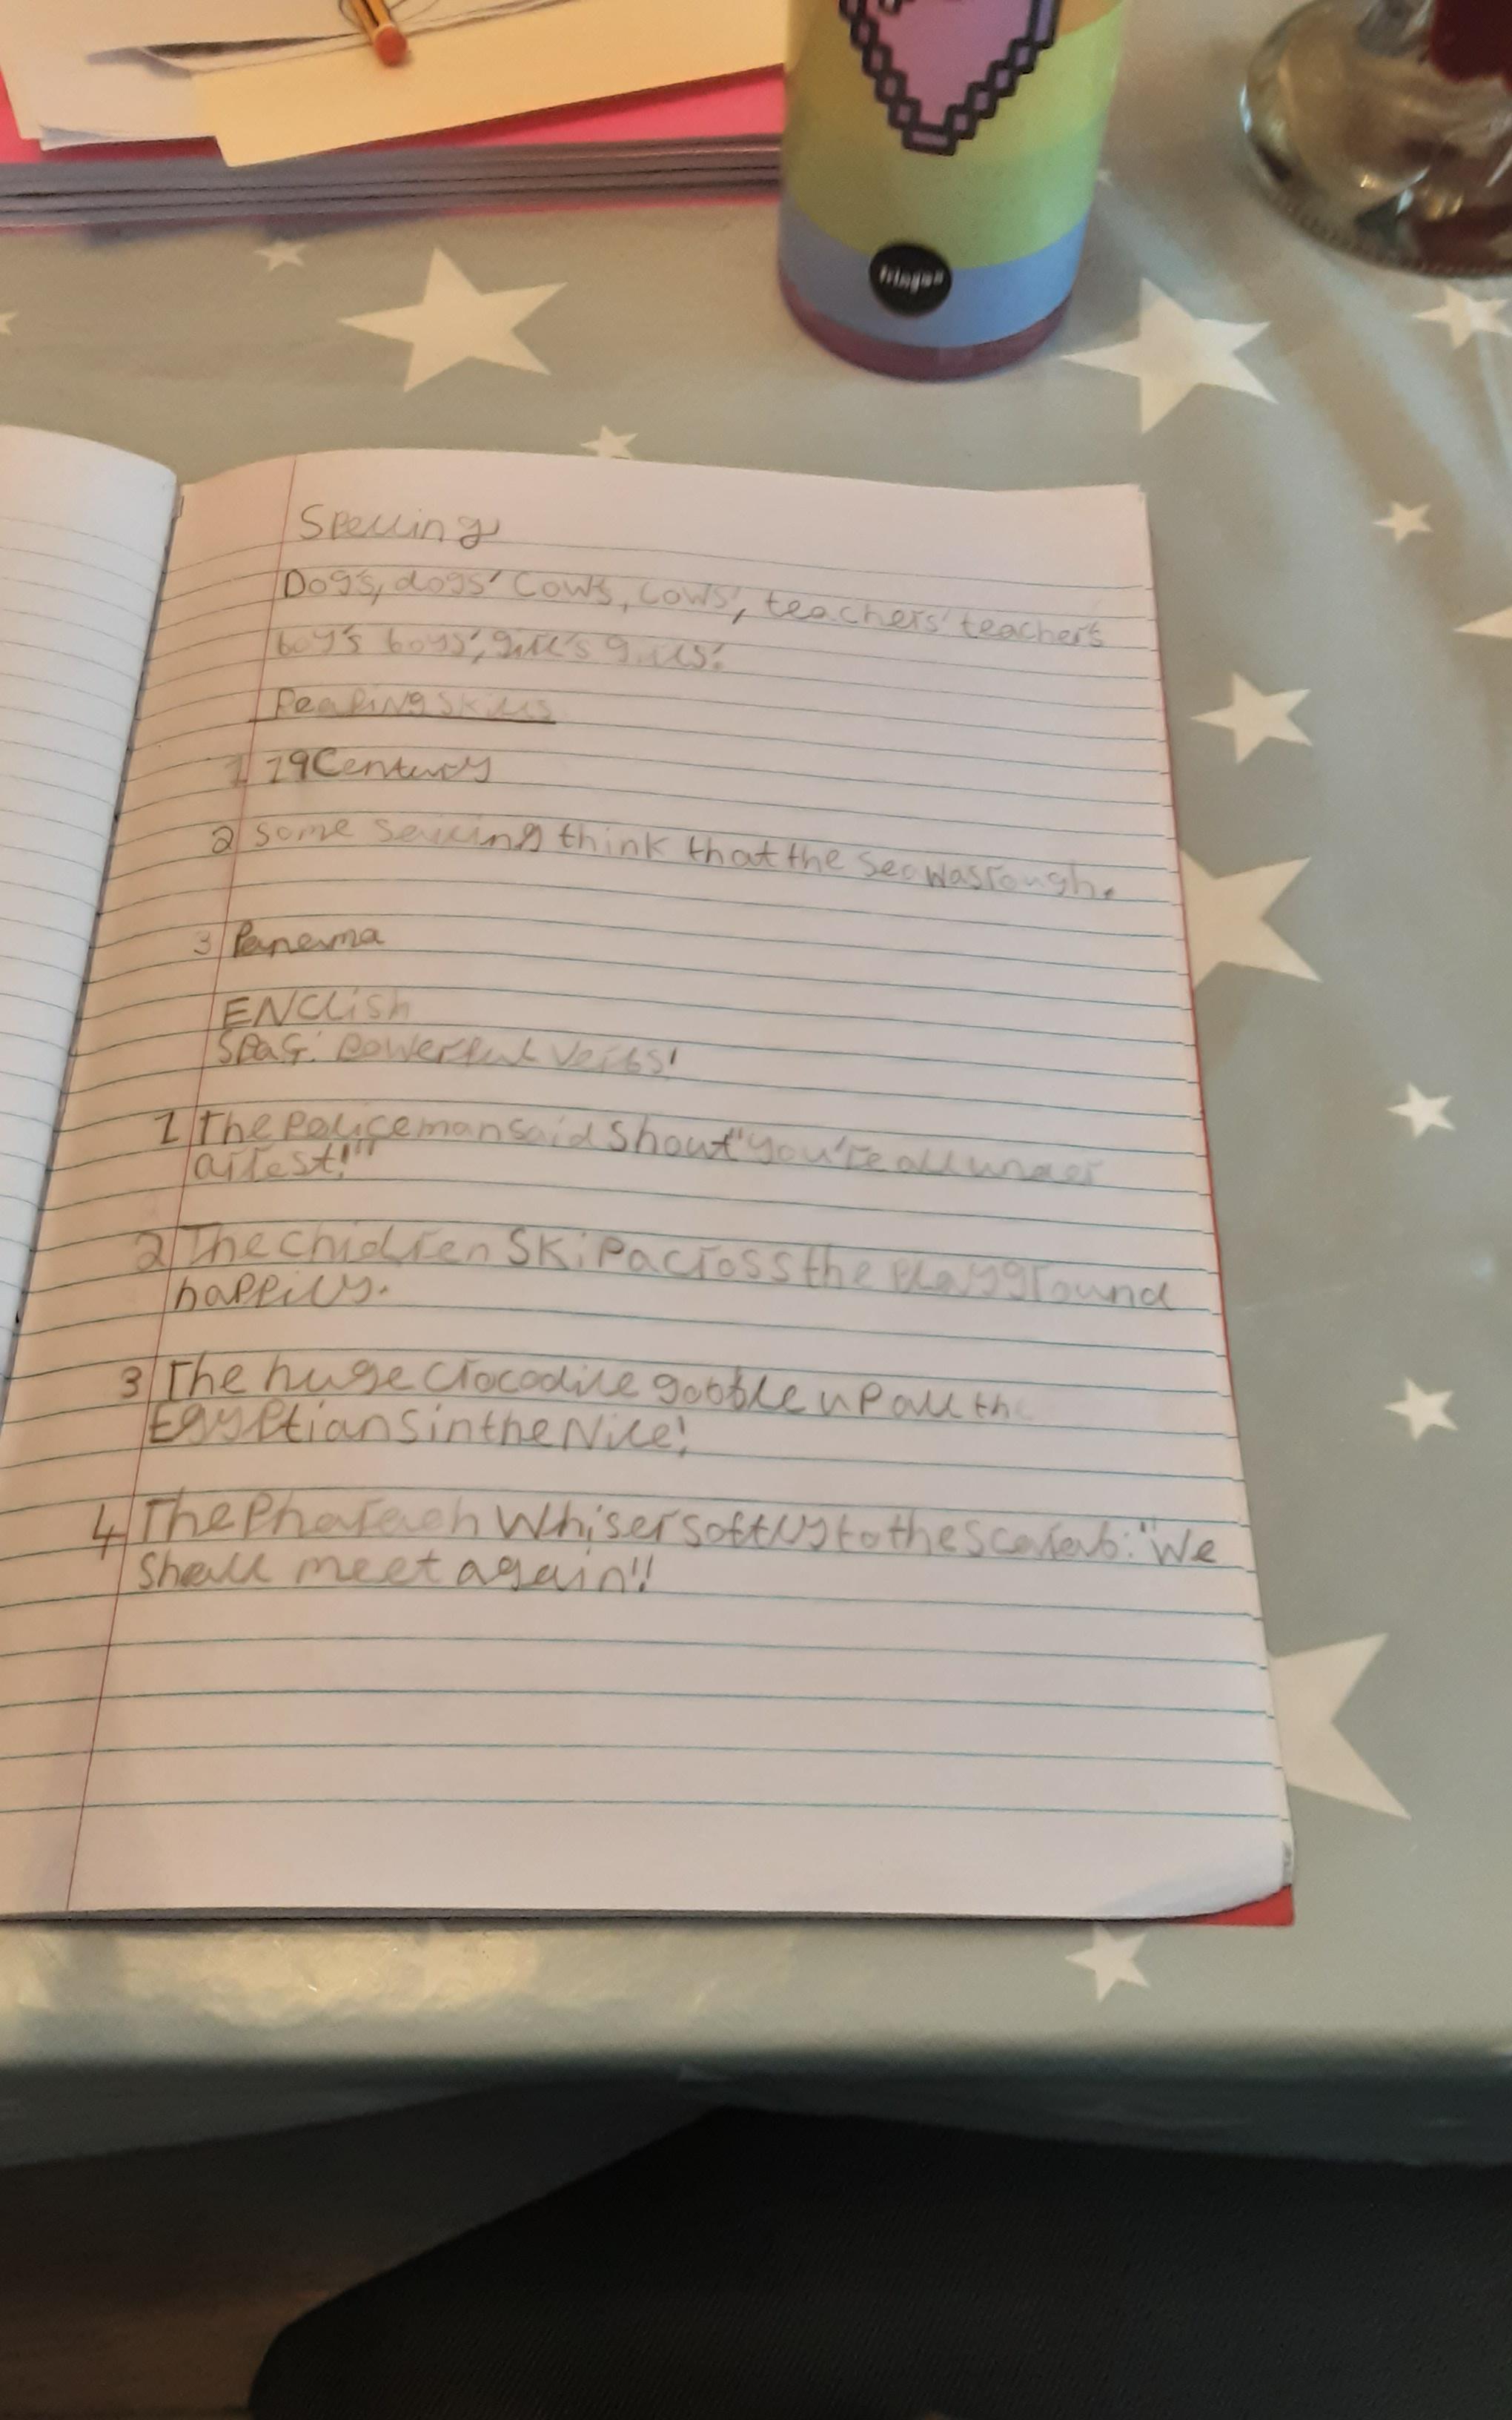 Spelling
Dog's, dogs' Cow's, cows', teachers' teacher's
boy's boys', girl's girls'.
Reading skills
1 19Century
2 some think that the sea was rough.
3 Panema
ENGlish
SPaG: powerful verbs!
1 The policeman said shout "you're all under
arrest!"
2 The chidren skip across the playground
happily.
3 The huge crocodile gobble up all the
Egyptians in the Nile!
4 The Pharaoh whiser softly to the scarab: "We
shall meet again"!